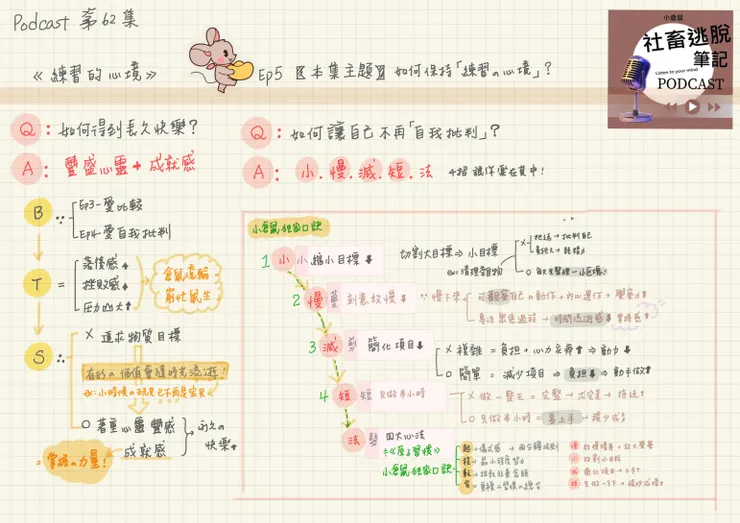 Podcast 第62集
《練習的心境》
Ep5 〖本集主題〗如何保持「練習の心境」?
小倉鼠
社畜逃脫
筆記
Listen to your mind
PODCAST
Q:如何得到長久快樂?
A:豐盛心靈+成就感
B ∵
Ep3-愛比較
Ep4-愛自我批判
T =
落僚感
挫敗感
壓力山大
倉鼠滾輪
窮忙鼠生
S:
X 追求物質目標
有形の價值會隨時光流逝!
ex:小時候の玩具已不再是寶貝
O 著重心靈豐感
成就感
永久の
快樂
=掌握の力量!
Q:如何讓自己不再「自我批判」?
A:小.慢.減.短.法 4招讓你樂在其中!
小倉鼠獨家口訣
1 小 縮小目標
切割大目標⇒小目標
ex:清理雜物
O 每次整理一小區塊!
2 慢 刻意放慢
∵慢下來
可觀察自己の動作+內心運作+覺察力
易注思緒過程→時間流逝感
3 減 簡化項目
X 複雜=負擔+心力交瘁⇒動力
O 簡單=減少項目⇒負擔⇒動力
4 短 只做半小時
X 做一整天=完整→求完美→拖延
O 只做半小時=易上手→積少成多
法 四大心法
《原子習慣》
小倉鼠獨家口訣